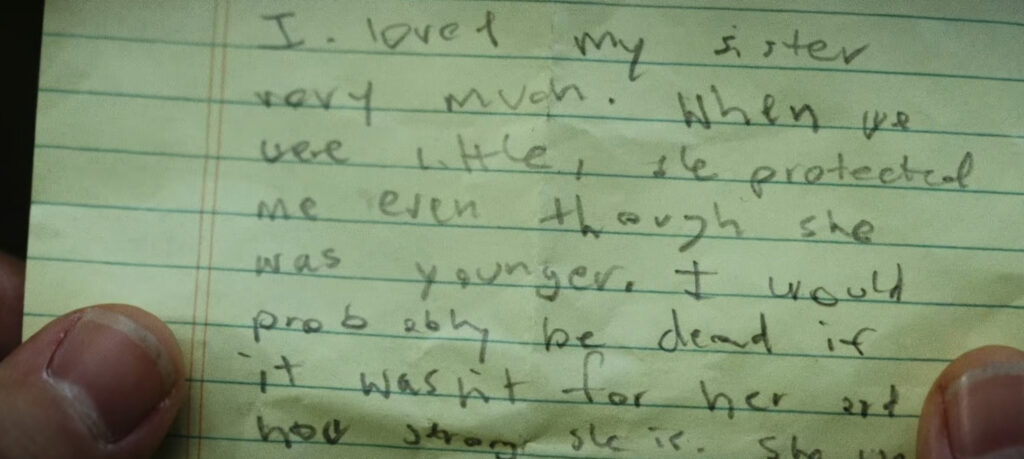 I. loved my sister
very much. When we
were little, she protected
me even though she
was younger. I would
probably be dead if
it wasn't for her and
how strong she is. She